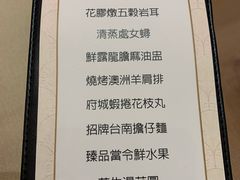 花膠燉五穀岩耳
清蒸處女蟳
鮮露龍膽麻油盅
燒烤澳洲羊肩排
府城蝦捲花枝丸
招牌台南擔仔麵
臻品當令鮮水果